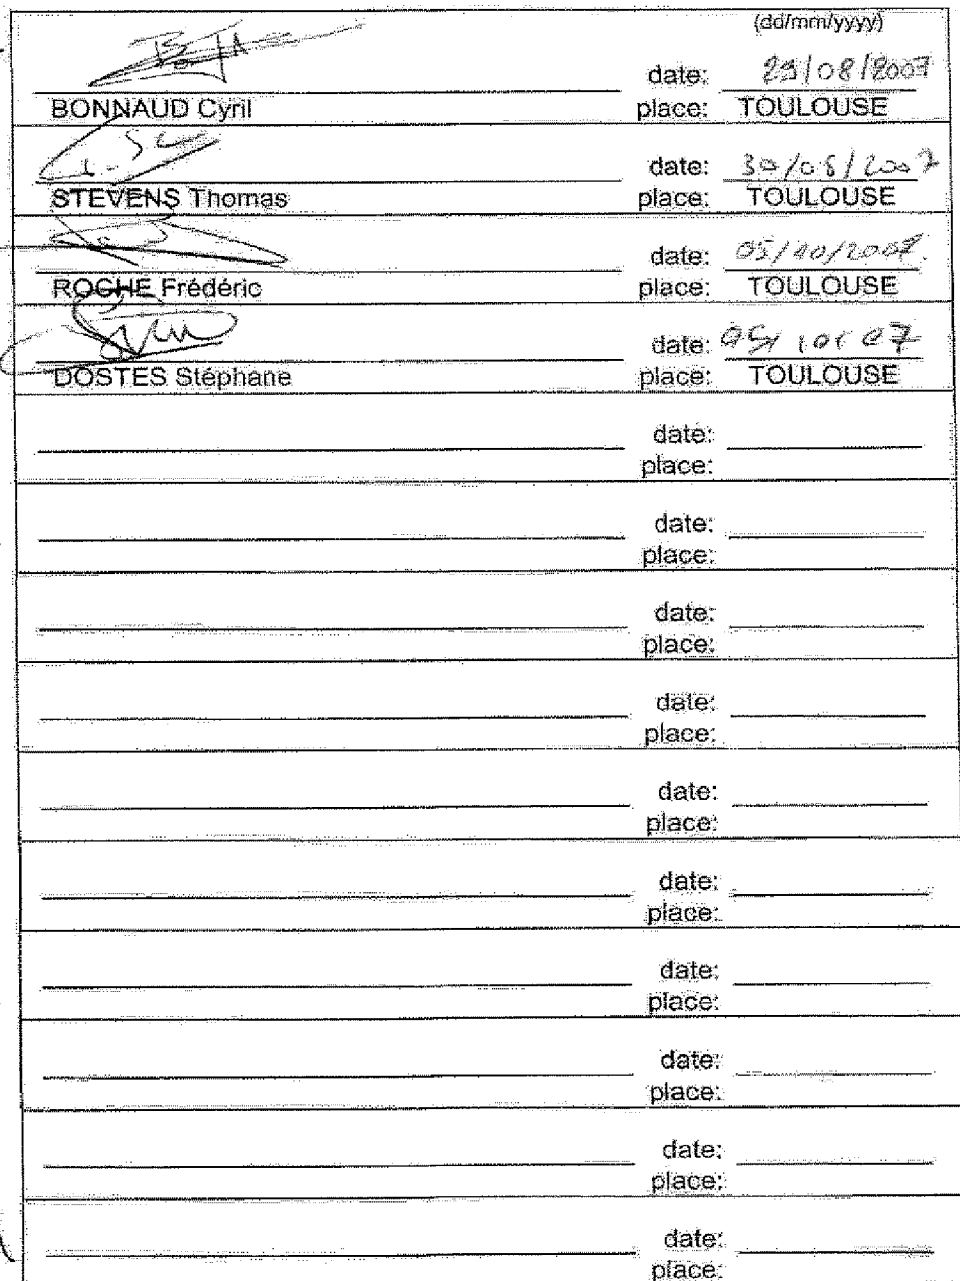 (dd/mm/yyyy)
date: 29/08/2007
BONNAUD Cyril place: TOULOUSE
date: 30/08/2007
STEVENS Thomas place: TOULOUSE
date: 05/10/2007
ROCHE Frédéric place: TOULOUSE
date: 05/10/07
DOSTES Stéphane place: TOULOUSE
date:
place:
date:
place:
date:
place:
date:
place:
date:
place:
date:
place:
date:
place:
date:
place:
date:
place:
date:
place: